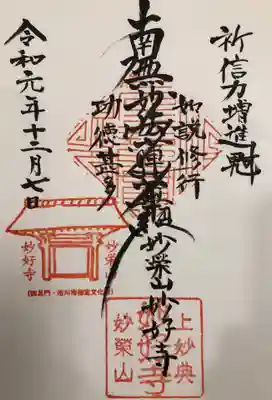 祈信力増進魁
如説修行
南無妙法蓮華経
功徳甚多
妙栄山妙好寺
令和元年十二月七日
妙栄山
妙好寺
上妙典
妙好寺
妙榮山